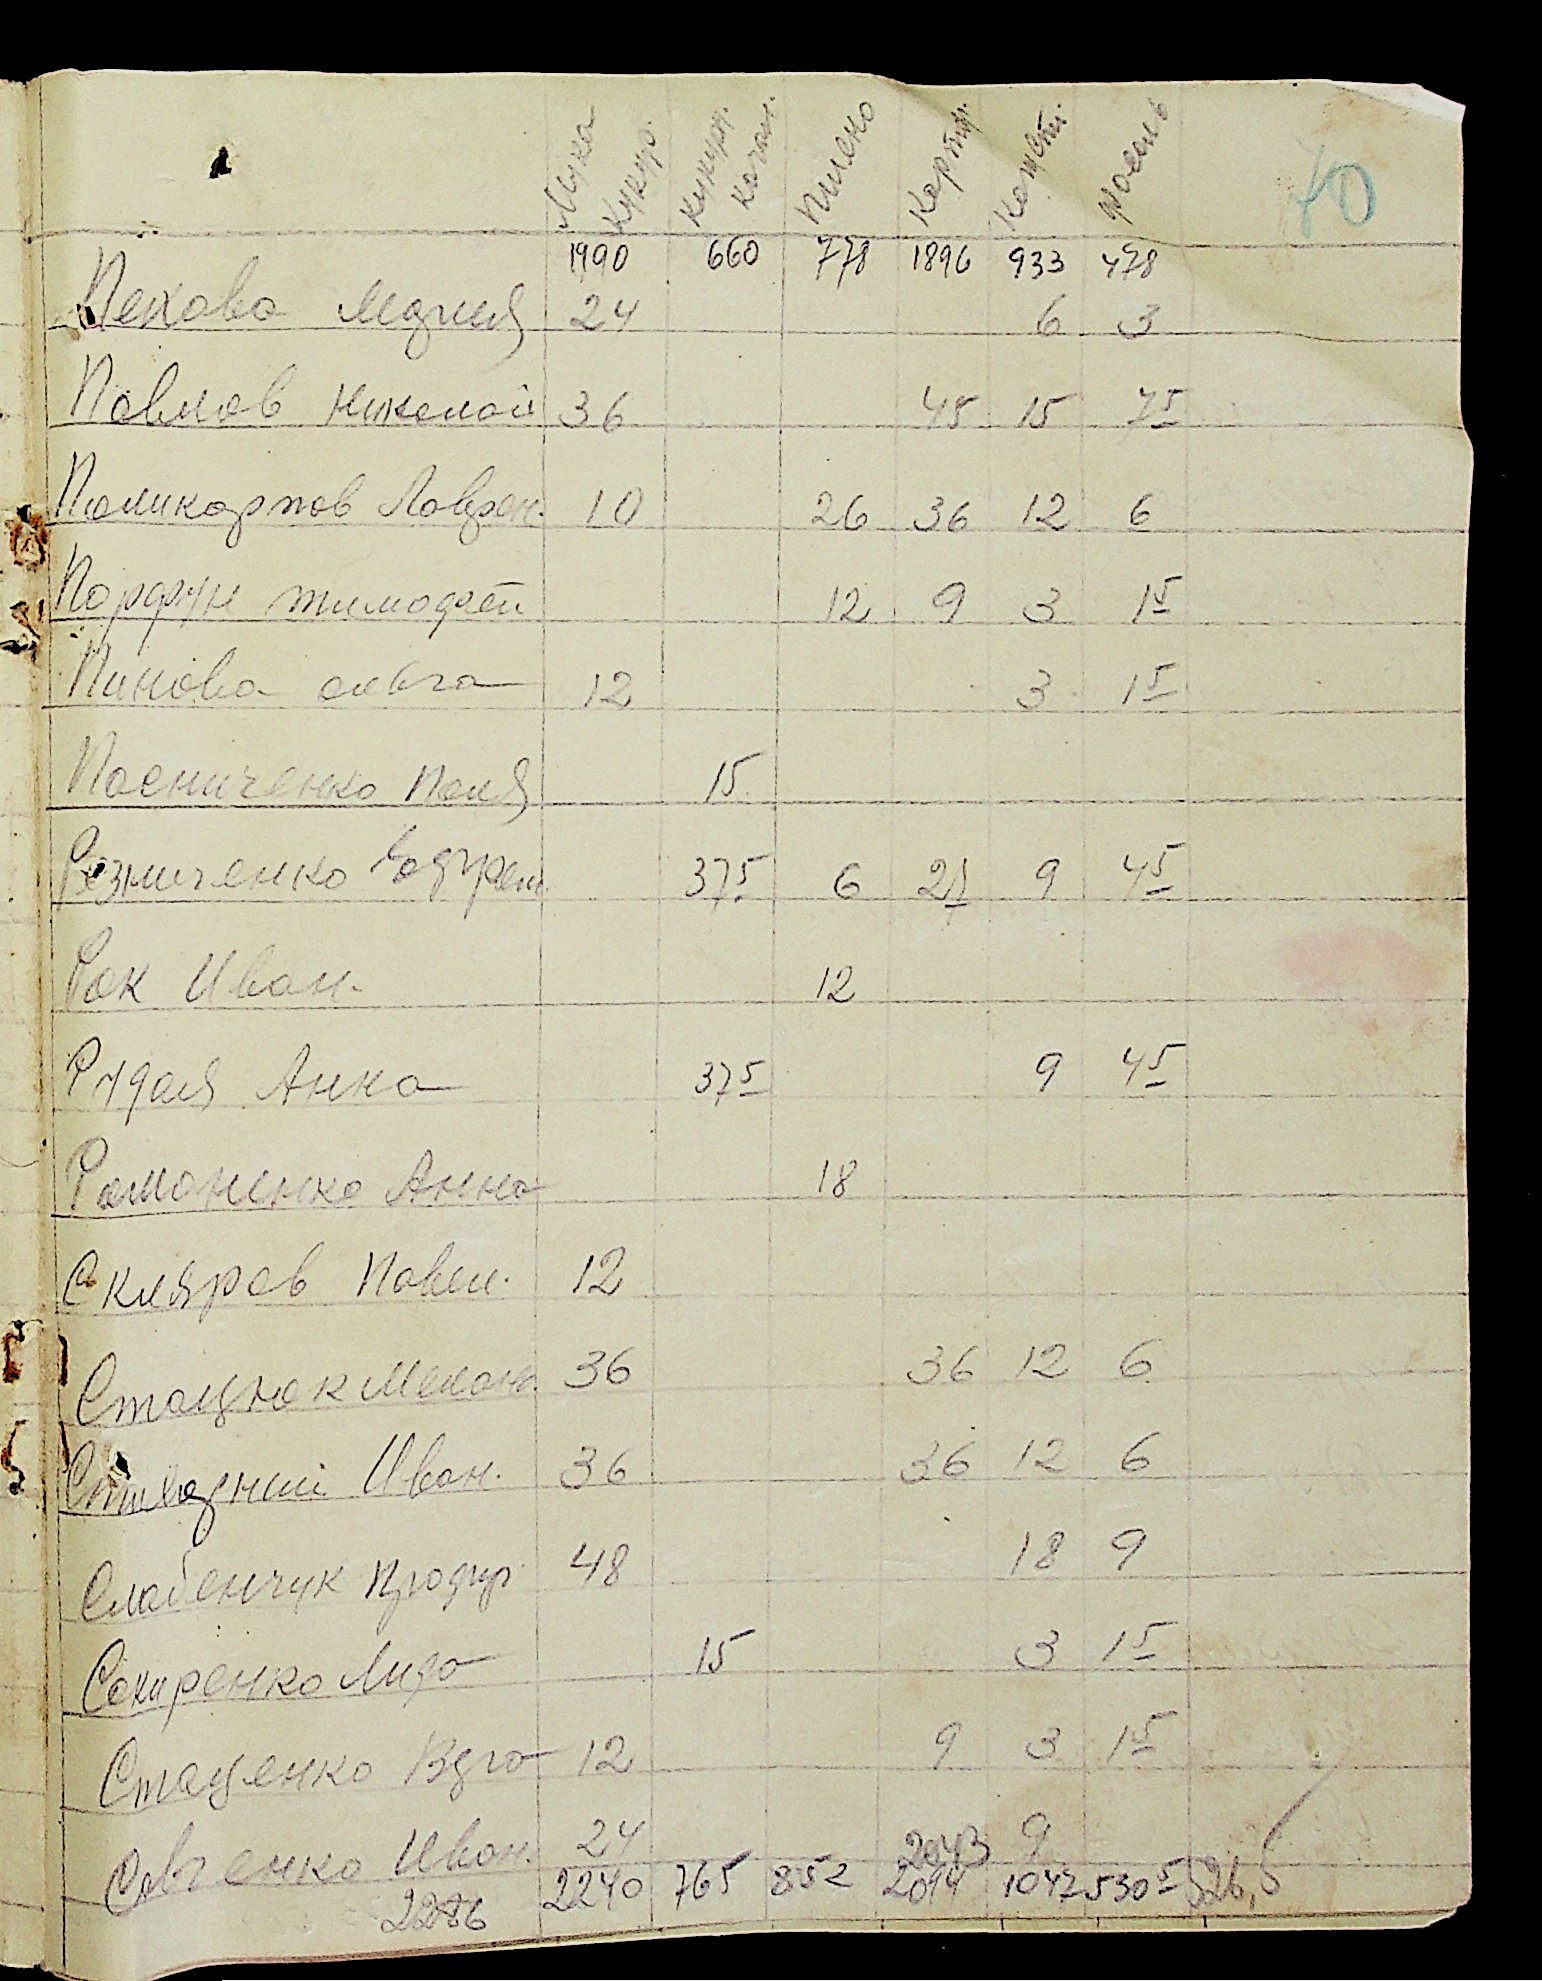 Мука кукур. Кукур. качан. Пшено Картоф. Капуст. Фасоль
70
1990 660 778 1896 933 478
Пехова Мария 24 6 3
Павлов Николай 36 45 15 7 5
Поликарпов Лаврен. 10 26 36 12 6
Парфун Тимофей 12 9 3 1 5
Пинова Ольга 12 3 1 5
Пасниченко Поля 15
Резниченко 37 5 6 27 9 4 5
Рак Иван. 12
Рудая Анна 37 5 9 4 5
Романенко Анна 18
Скляров Павел. 12
Стацюк Мелан. 36 36 12 6
Иван. 36 36 12 6
Слабенчук 48 18 9
Сокиренко Лида 15 3 1 5
Стаценко Вера 12 9 3 1 5
Савченко Иван. 24 2043 9
2240 765 852 2014 1047 530 5 526,5
2286